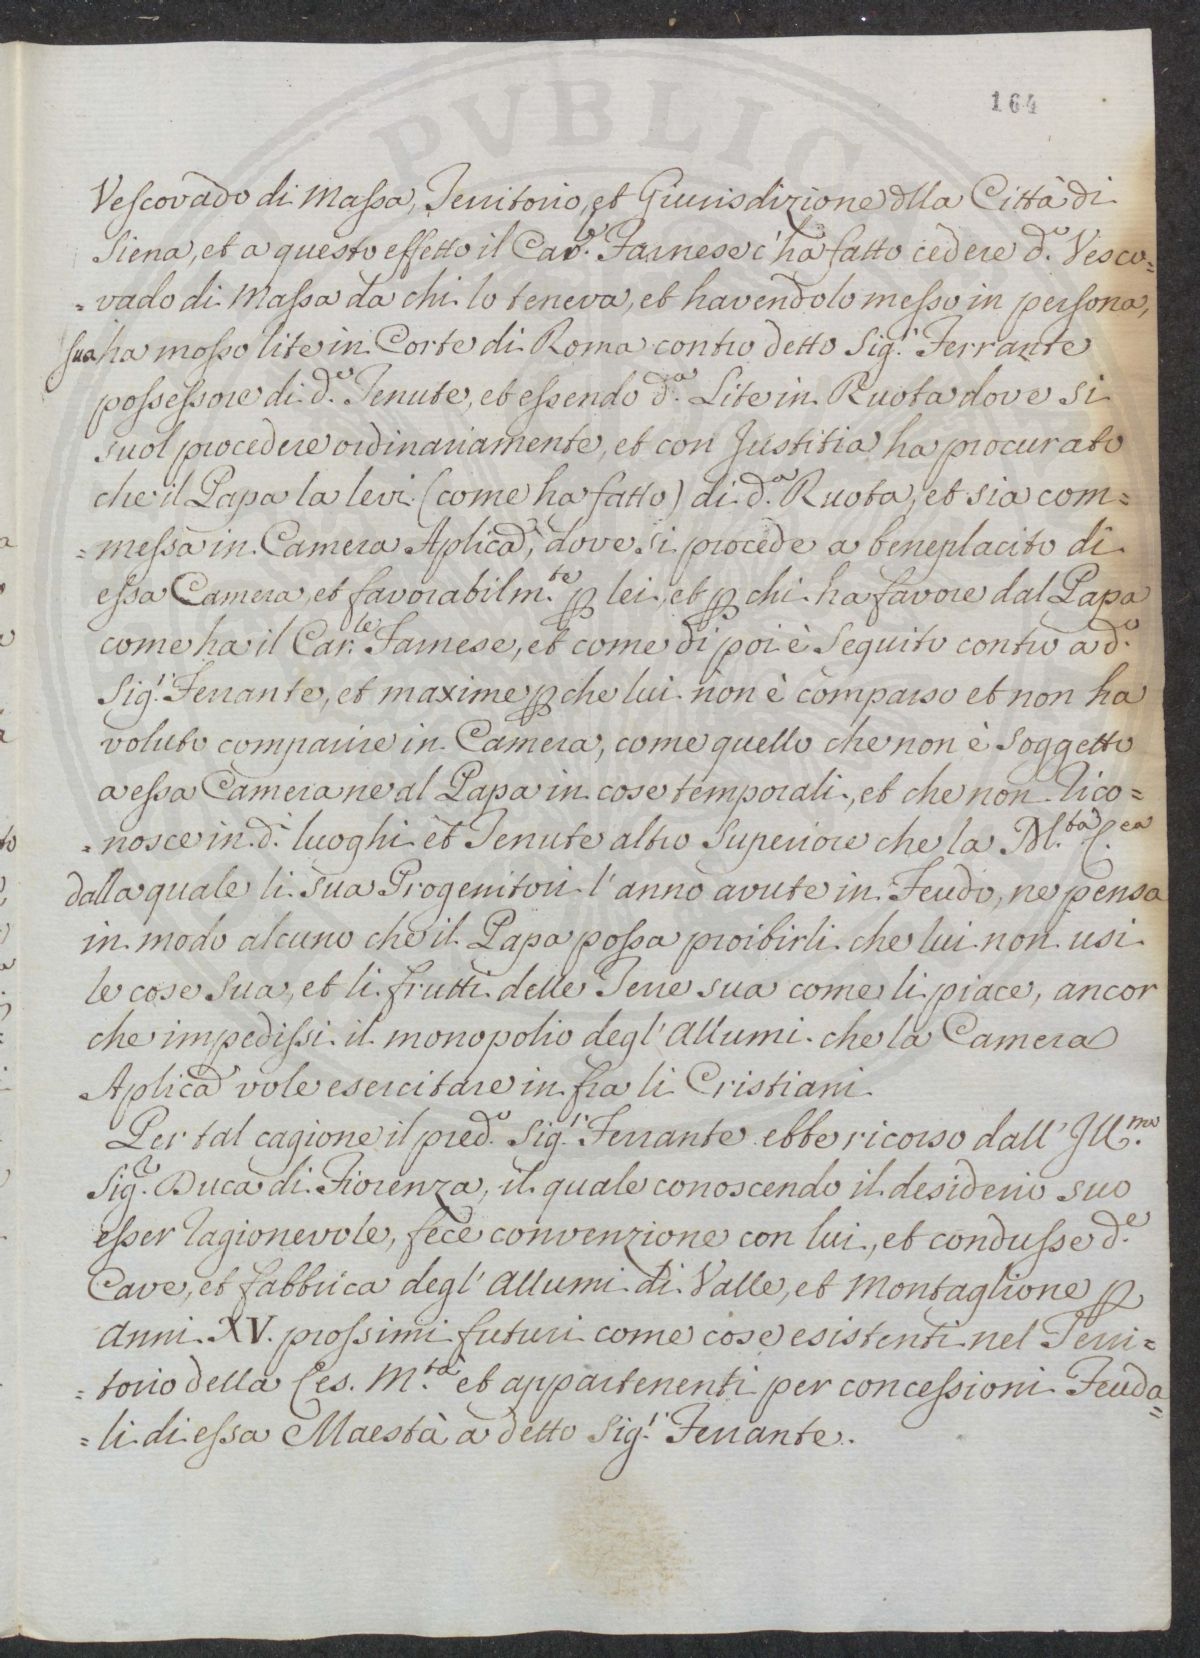 PVBLIC
164
Vescovado di Massa, Territorio, et Giurisdizione dlla Città di
Siena, et a questo effetto il Car.le Farnese c'ha fatto cedere d.o Vesco=
=vado di Massa da chi lo teneva, et havendolo messo in persona,
sua ha mosso lite in Corte di Roma contro detto Sig.r Ferrante
possessore di d.e Tenute, et essendo d.a Lite in Ruota dove si
suol procedere ordinariamente, et con Justitia ha procurato
che il Papa la levi (come ha fatto) di d.a Ruota, et sia com=
=messa in Camera Aplica, dove si procede a beneplacito di
essa Camera, et favorabilm.te p lei, et p chi ha favore dal Papa
come ha il Car.le Farnese, et come di poi è seguito contro a d.o
Sig.r Ferrante, et maxime p che lui non è comparso et non ha
voluto comparire in Camera, come quello che non è soggetto
a essa Camera ne al Papa in cose temporali, et che non rico=
=nosce in d.i luoghi et Tenute altro Superiore che la M.tà C.ea
dalla quale li sua Progenitori l'anno avute in Feudo, ne pensa
in modo alcuno che il Papa possa proibirli che lui non usi
le cose sua, et li frutti delle Terre sua come li piace, ancor
che impedissi il monopolio degl'Allumi che la Camera
Aplica vole esercitare in fra li Cristiani.
Per tal cagione il pred.o Sig.r Ferrante ebbe ricorso dall'Ill.mo
Sig.r Duca di Fiorenza, il quale conoscendo il desiderio suo
esser ragionevole, fece convenzione con lui, et condusse d.e
Cave, et fabbrica degl'Allumi di Valle, et Montaglione p
Anni XV. prossimi futuri come cose esistenti nel Terri=
=torio della Ces. M.tà et appartenenti per concessioni Feuda=
=li di essa Maestà a detto Sig.r Ferrante.